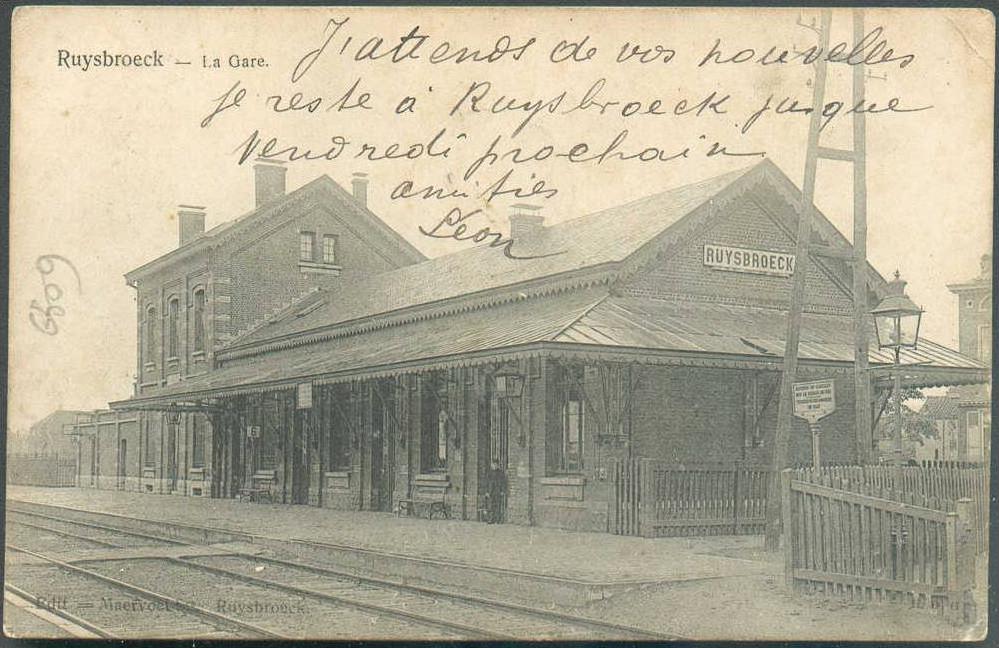 Ruysbroeck — La Gare.
J'attends de vos nouvelles
je reste à Ruysbroeck jusque
Vendredi prochain
amitiés
Léon
RUYSBROECK
6809
Edit — Maervoet Ruysbroeck.